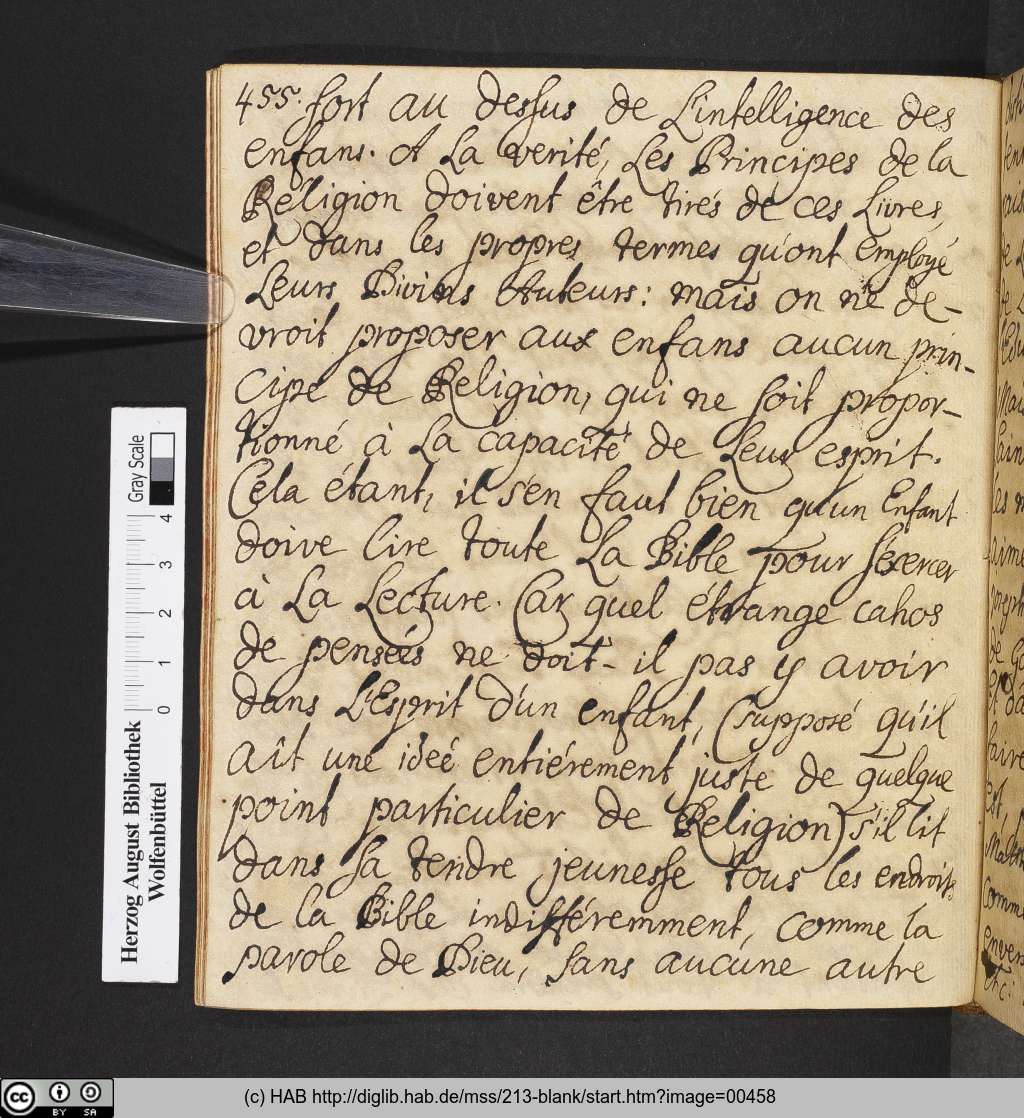 455. fort au dessus de L'intelligence des
enfans. A La verité, Les Principes de la
Réligion doivent être tirés de ces Livres,
et dans les propres termes qu'ont Employé
Leurs Divins Auteurs: mais on ne de-
vroit proposer aux enfans aucun prin-
cipe de Religion, qui ne soit propor-
tionné à La capacité de Leur esprit.
Cela étant, il s'en faut bien qu'un Enfant
doive lire toute La Bible pour s'exercer
à La Lecture. Car quel étrange cahos
de pensées ne doit-il pas y avoir
dans L'Esprit d'un enfant, (supposé qu'il
aît une ideé entiérement juste de quelque
point particulier de Religion) s'il lit
dans sa tendre jeunesse tous les endroits
de la Bible indifféremment, comme la
parole de Dieu, sans aucune autre
Herzog August Bibliothek
Wolfenbüttel
Gray Scale
0 1 2 3 4
cc BY SA
(c) HAB http://diglib.hab.de/mss/213-blank/start.htm?image=00458